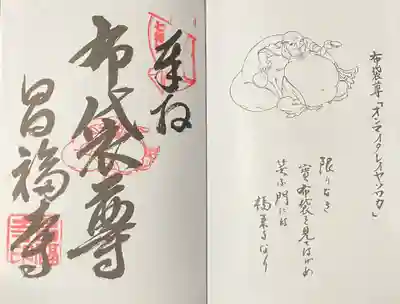 奉拝
布袋尊
昌福寺
布袋尊「オンマイタレイヤソワカ」
限りなき
寶布袋を見て
笑ふ門には
福来るなり